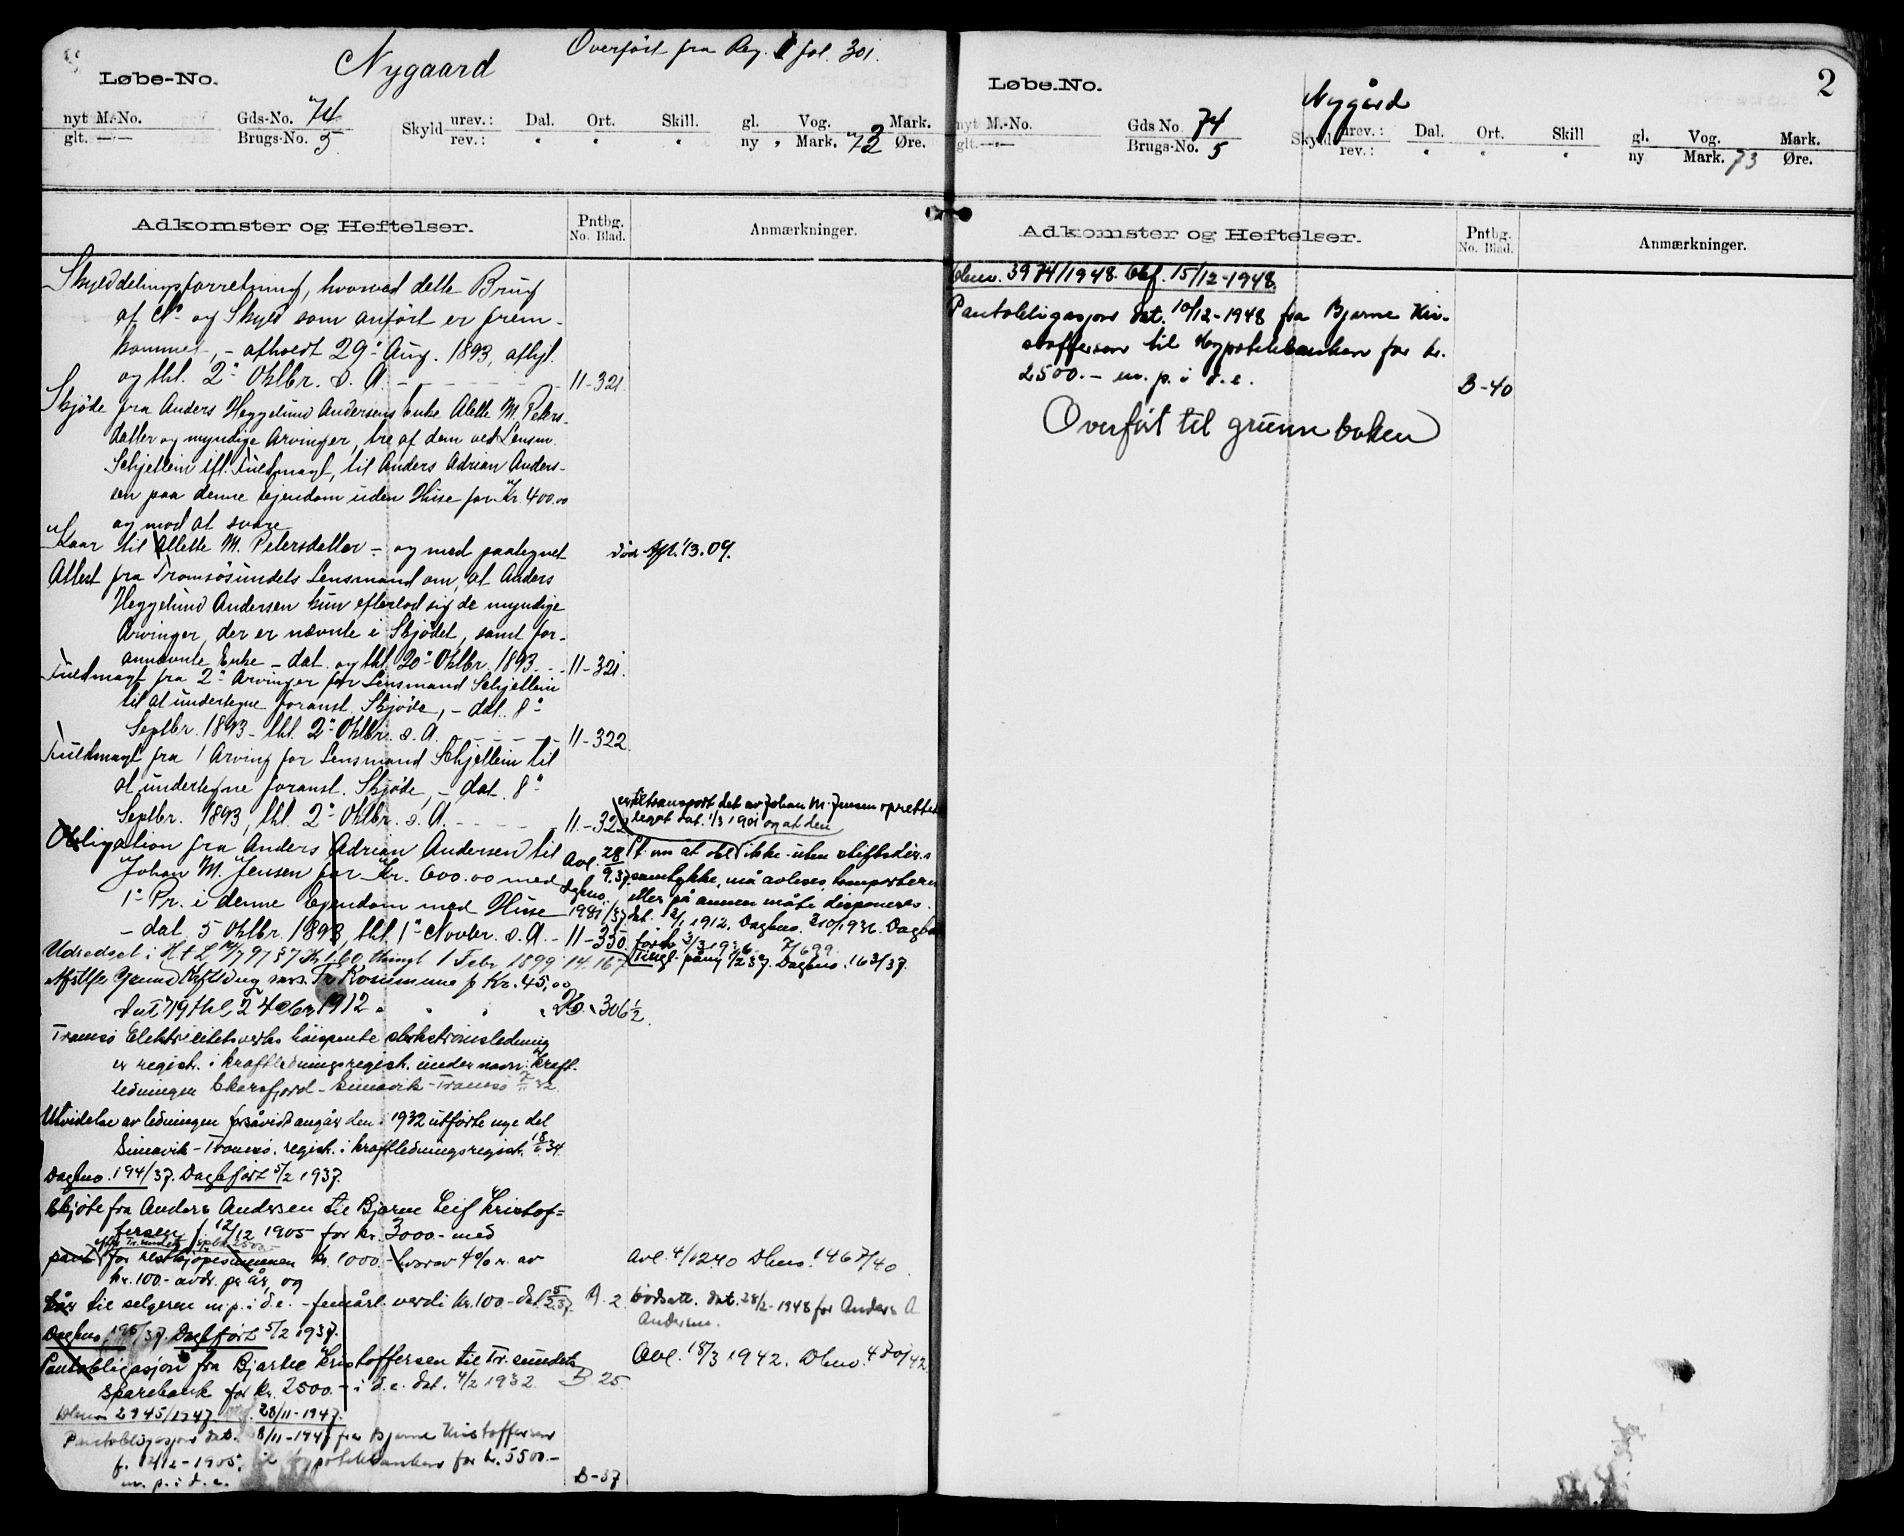 Nygaard
Overført fra Reg. 1 fol. 301.
Løbe-No.
nyt M.-No.
glt. —
Gds-No. 74
Brugs-No. 5
Skyld urev.: Dal. Ort. Skill. gl. Vog. Mark.
rev.: " " " ny " Mark. 73 Øre.
Adkomster og Heftelser.
Pntbg.
No. Blad.
Anmærkninger.
Skylddelingsforretning, hvorved dette Brug
af No og Skyld som anført er frem-
kommet, - afholdt 29de Aug. 1893, aflyst
og thl. 2 Oktbr. s. A. - - - - 11-321
Skjøde fra Anders Heggelund Andersens Enke Alette M. Peters-
datter og myndige Arvinger, tre af dem ved Lensm.
Schjellein ifl. Fuldmagt, til Anders Adrian Anders-
sen paa denne Ejendom uden Huse for Kr. 400.00
og mod at svare
Kaar til Allette M. Petersdatter - og med paategnet
død 1/3.09.
Attest fra Tromsøsundets Lensmand om, at Anders
Heggelund Andersen kun efterlod sig de myndige
Arvinger, der er nævnte i Skjødet, samt for-
annævnte Enke - dat. og thl. 20 Oktbr. 1893 - - 11-321.
Fuldmagt fra 2 Arvinger for Lensmand Schjellein
til at undertegne foranst. Skjøde, - dat. 8
Septbr. 1893 - thl. 2 Oktbr. s. A. - - - - 11-322.
Fuldmagt fra 1 Arving for Lensmand Schjellein til
at undertegne foranst. Skjøde, - dat. 8
Septbr. 1893, thl. 2 Oktbr. s. A. - - - 11-322
er tiltransport det av Johan M. Jensen oprettede
legat dat. 1/3 1901 og at den
Obligation fra Anders Adrian Andersen til
Avl. 28/9.37.
Johan M. Jensen for Kr. 600.00 med
Dgbno.
1 Pr. i denne Ejendom med Huse
1981/37
- dat. 5 Oktbr. 1898, thl. 1 Novbr. s. A. - 11-350.
om at obl. ikke uten stiftsdir.s
samtykke må avleses, transporteres
eller på annen måte disponeres.
1912, Dagbno. 310/1936. Dagb.
ført 3/3 1936.
Tingl. påny 1/2 37. Dagbno. 163/37.
Udredsel i H t L 14/7 97 § 7 Kr 1.60, thingl 1 Febr 1899 14.167
Tr Kommune f Kr. 45,00
1912 " " 306 1/2.
Tromsø Elektricitetsverks høispente sterkstrømsledning
er registr. i kraftledningsregist. under navn: Kraft-
ledningen Skarsfjord - Simavik - Tromsø 32
Utvidelse av ledningen forsåvidt angår den i 1932 utførte nye del
Simavik - Tromsø. registr. i kraftledningsregist. 34
Dagbno. 194/37. Dagbført 5/2 1937.
Skjøte fra Anders Andersen til Bjarne Leif Kristof-
fersen f. 12/12 1905 - for kr. 3000.- med
pant for restkjøpesummen kr. 1000.- hvorav 4% r. av
Avl. 4/12 40 Dbno. 1467/40.
kr. 100.- avdr. pr. år, og
kår til selgeren m.p. i d.e. - femårl. verdi kr. 100.- dat. 5/2.37. A. 2.
Dødsatt. dat. 28/2 - 1948 for Anders A
Andersen.
Dagbno. 195/37. Dagbført 5/2 1937.
Pantobligasjon fra Bjarne Kristoffersen til Tr.sundets
Sparebank for kr. 2500.- i d.e. dat. 4/2 1932 B. 25.
Avl. 18/3 1942. Dbno. 470/42
Dbno. 2945/1947. 28/11-1947.
Pantobligasjon dat. 8/11-1947 fra Bjarne Kristoffersen
f. 12/12-1905, til Hypotekbanken for kr. 5500.-
m. p. i d. e. B-37
2
Løbe-No.
Nygård
nyt M.-No.
glt. —
Gds No. 74
Brugs-No. 5
Skyld urev.: Dal. Ort. Skill gl. Vog. Mark.
rev.: " " " ny Mark. 73 Øre.
Adkomster og Heftelser.
Pntbg.
No. Blad.
Anmærkninger.
Dbno. 3974/1948. Dbf. 15/12-1948.
Pantobligasjon dat. 10/12-1948 fra Bjarne Kri-
stoffersen til Hypotekbanken for kr.
2500.- m. p. i d.e. B-40
Overført til grunnboken